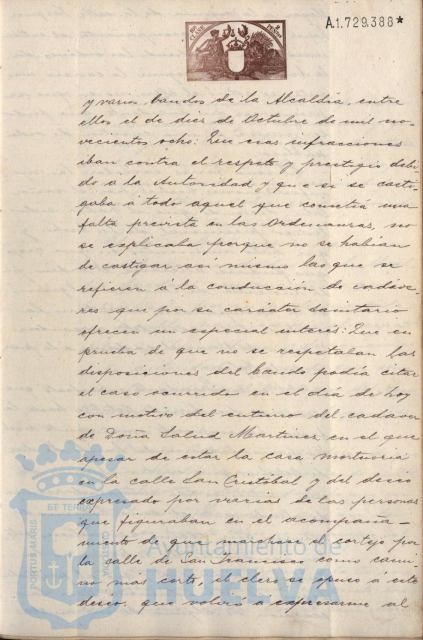 A.1.729.388*
y varios bandos de la Alcaldia, entre
ellos el de diez de Octubre de mil no-
vecientos ocho: Que esas infracciones
iban contra el respeto y prestigio debi-
do á la Autoridad y que si se casti-
gaba á todo aquel que cometía una
falta prevista en las Ordenanzas, no
se explicaba porque no se habian
de castigar asi mismo las que se
refieren á la conducción de cadáve-
res que por su carácter sanitario
ofrecen un especial interés: Que en
prueba de que no se respetaban las
disposiciones del bando podia citar
el caso ocurrido en el dia de hoy
con motivo del entierro del cadaver
de Doña Salud Martinez, en el que
apesar de estar la casa mortuoria
en la calle San Cristóbal y del deseo
expresado por varias de las personas
que figuraban en el acompaña-
miento de que marchase el cortejo por
la calle de San Francisco como cami-
no mas corto, el clero se opuso á este
deseo, que volvió á expresarme al
PORTUS MARIS
ET TERRÆ
CUSTODIA
Ayuntamiento de
HUELVA